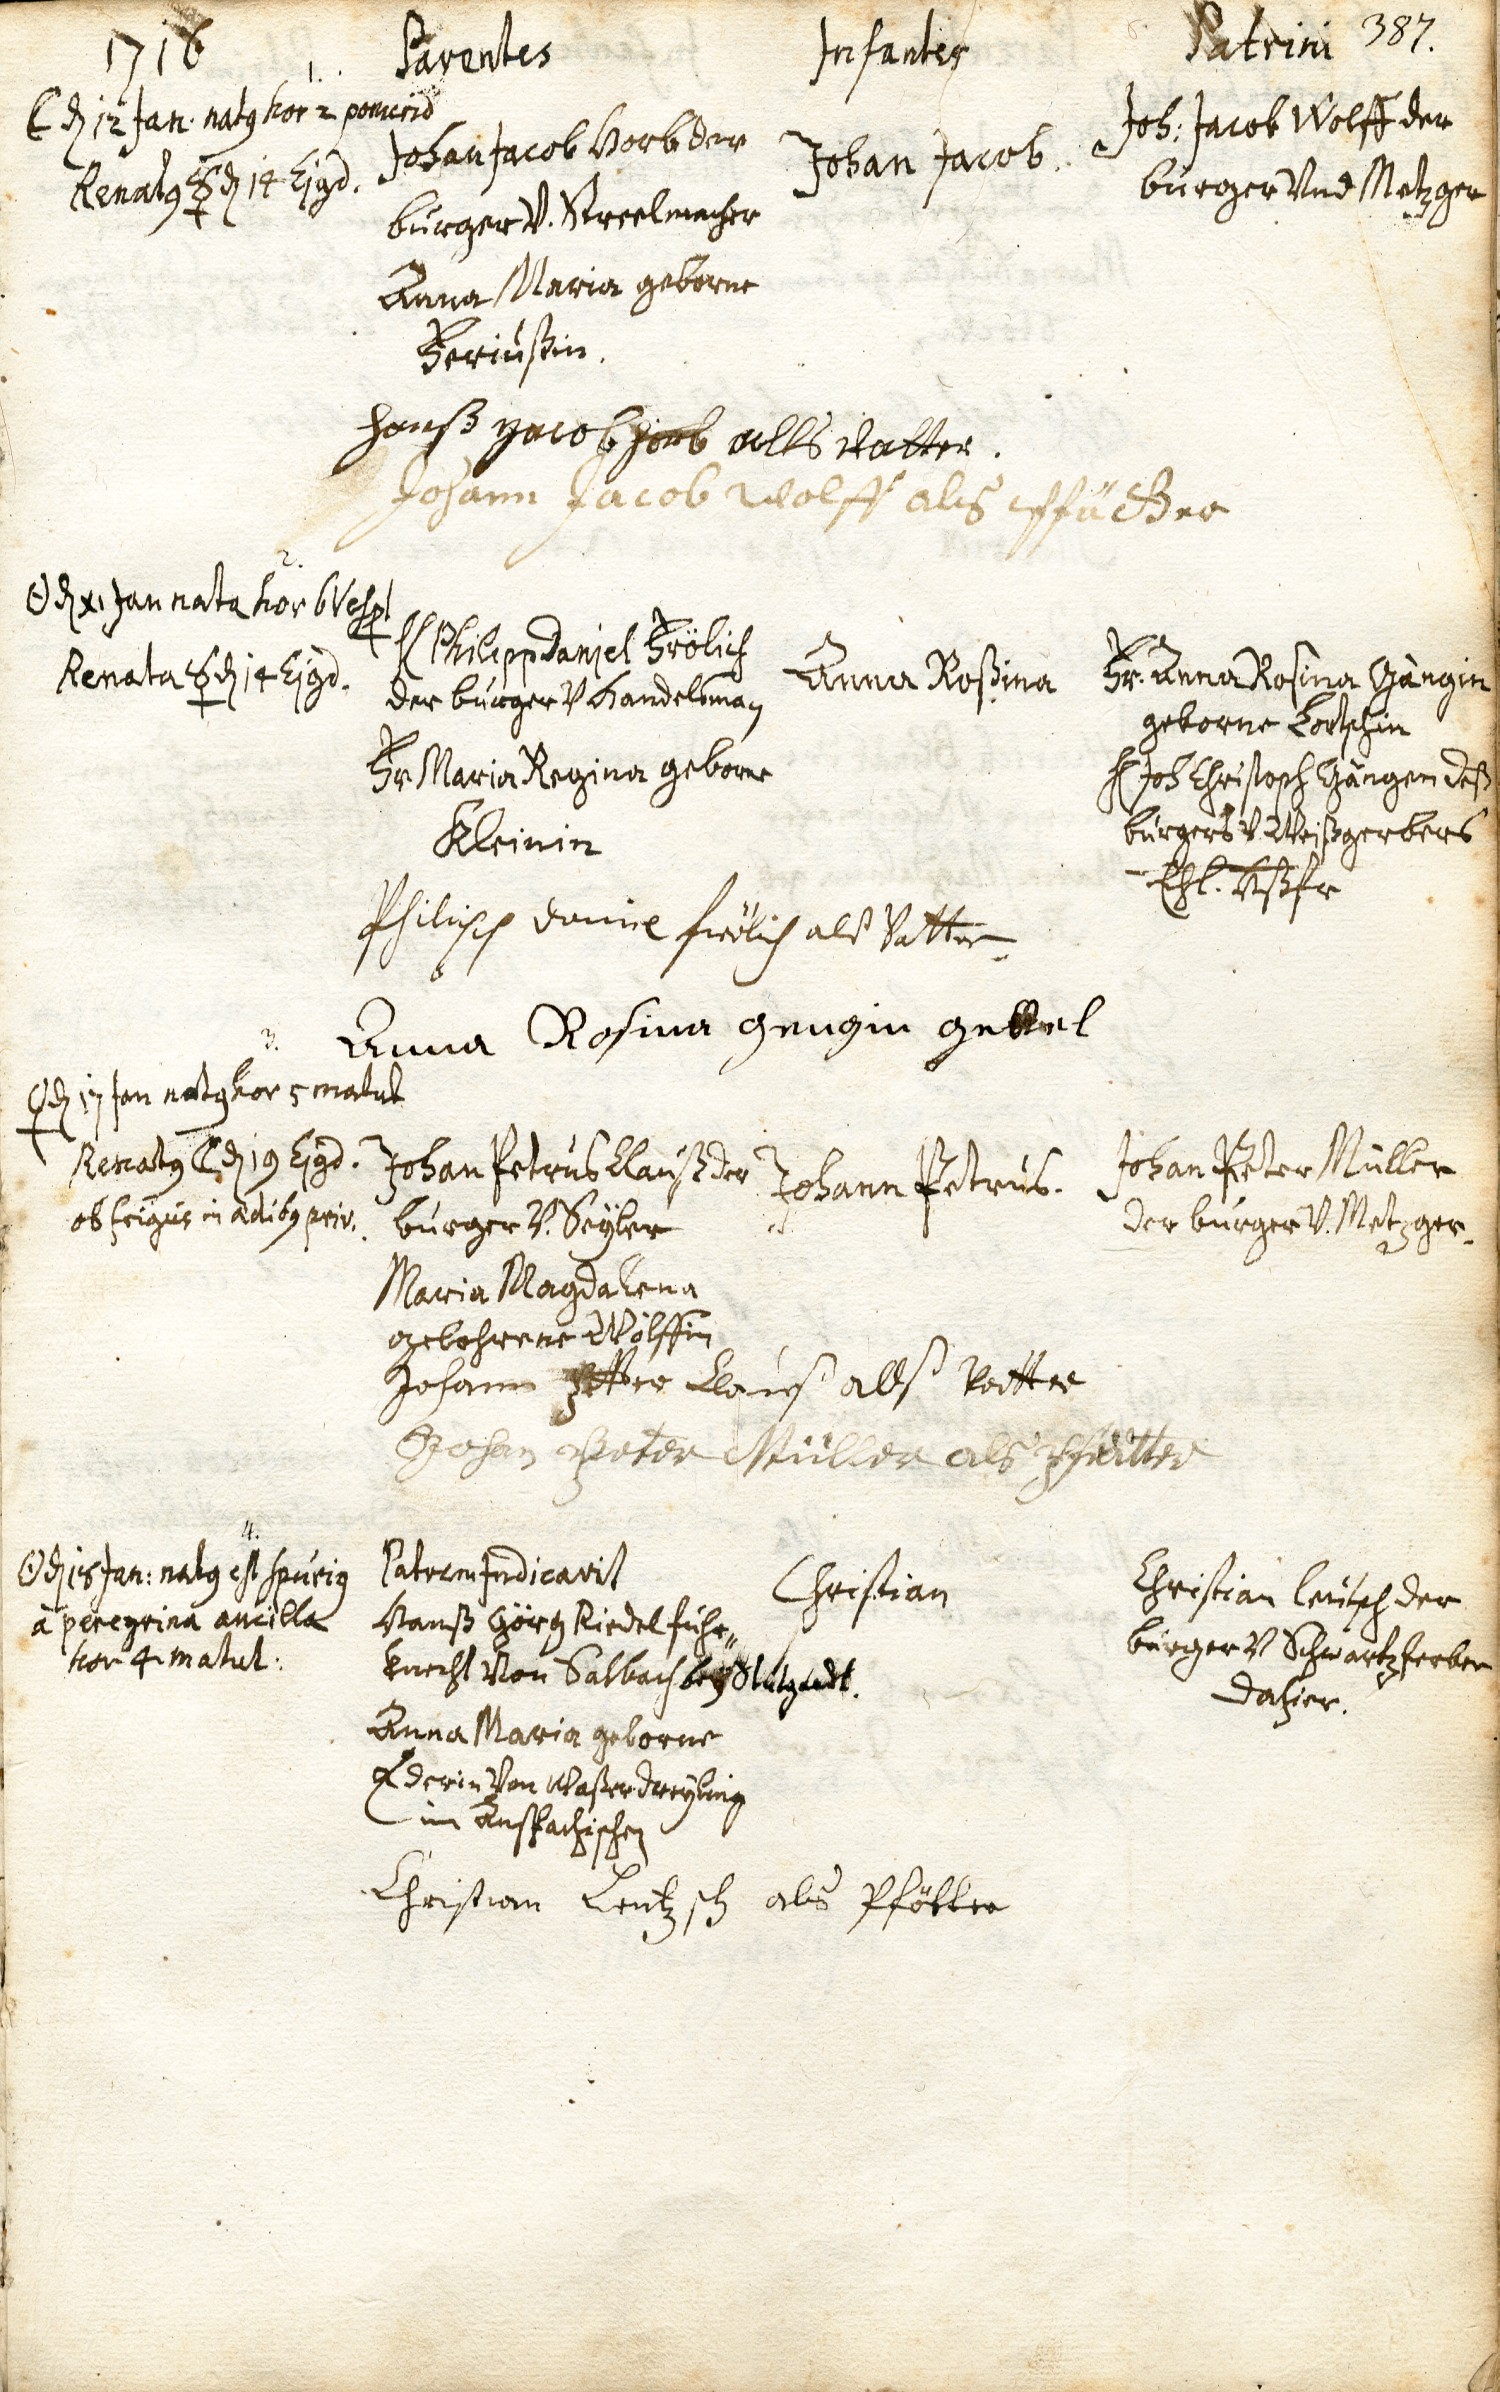 1716
Parentes
Infantes
Patrini 387.
1.
☾ d 12 Jan. natg hor 2 pomerid
Renatg ☿ d 14 Ejgd.
Johan Jacob Horb der
burger V. Streelmacher
Anna Maria geborne
Johan Jacob.
Joh: Jacob Wolff der
burger Vnd Metzger
hanß yacob horb alls Vatter.
Johann Jacob Wolff als
2.
☉ d Jan nata hor 6 Vesp
Renata ☿ d 14 Ejgd.
H Philipp Daniel Frölich
der burger V handelsman
Fr Maria Regina geborne
Kleinin
Anna Roßina
Fr. Anna Rosina Gängin
geborne
H Joh Christoph Gängen deß
burgers V Weißgerbers
Ehl.
Philipp daniel frölich alß Vatter
Anna Rosina gengin gettel
3.
♀ d 17 Jan natg hor 5 matut
Renatg ☾ d 19 Ejgd.
ob frigus in ædibg priv.
Johan Petrus Clauß der
burger V. Seyler
Maria Magdalena
gebohrene Wölffin
Johann Petrus.
Johan Peter Müller
der burger V. Metzger
Johann Petter Clauß alß Vatter
Johan Peter Müller als Pfetter
4.
☉ d Jan: natg est spurig
à peregrina ancilla
hor 4 matut:
Patrem Indicavit
Hanß Görg Riedel fuhr„
knecht Von Salbach bey
Anna Maria geborne
Ederin Von Waßerdreyling
im Anspachischen
Christian
Christian Leutsch der
burger V Schwartzferber
dahier.
Christian Leutzsch als Pfötter